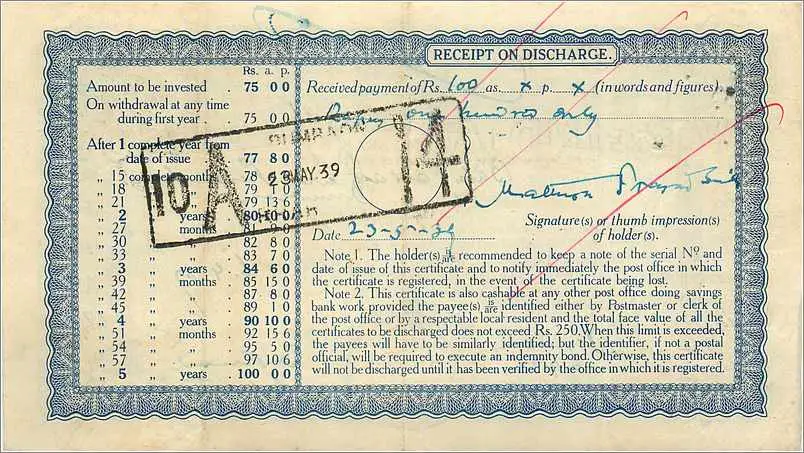 RECEIPT ON DISCHARGE.
Rs. a. p.
Amount to be invested . 75 0 0
On withdrawal at any time
during first year . . 75 0 0
After 1 complete year from
date of issue 77 8 0
„ 15 complete months 78
„ 18 79 1 0
„ 21 79 13 6
„ 2 „ years 80 10 0
„ 27 „ months
„ 30 „ 82 8 0
„ 33 „ 83 7 0
„ 3 „ years . 84 6 0
„ 39 „ months . 85 15 0
„ 42 „ . 87 8 0
„ 45 „ . 89 1 0
„ 4 „ years . 90 10 0
„ 51 „ months . 92 15 6
„ 54 „ . 95 5 0
„ 57 „ . 97 10 6
„ 5 „ years . 100 0 0
10 A 14
23 MAY 39
Received payment of Rs. 100 as. x p. x (in words and figures)
Rupees one hundred only
Signature(s) or thumb impression(s)
of holder(s).
Date 23-5-39
Note 1. The holder(s) is/are recommended to keep a note of the serial No and
date of issue of this certificate and to notify immediately the post office in which
the certificate is registered, in the event of the certificate being lost.
Note 2. This certificate is also cashable at any other post office doing savings
bank work provided the payee(s) is/are identified either by Postmaster or clerk of
the post office or by a respectable local resident and the total face value of all the
certificates to be discharged does not exceed Rs. 250. When this limit is exceeded,
the payees will have to be similarly identified; but the identifier, if not a postal
official, will be required to execute an indemnity bond. Otherwise, this certificate
will not be discharged until it has been verified by the office in which it is registered.